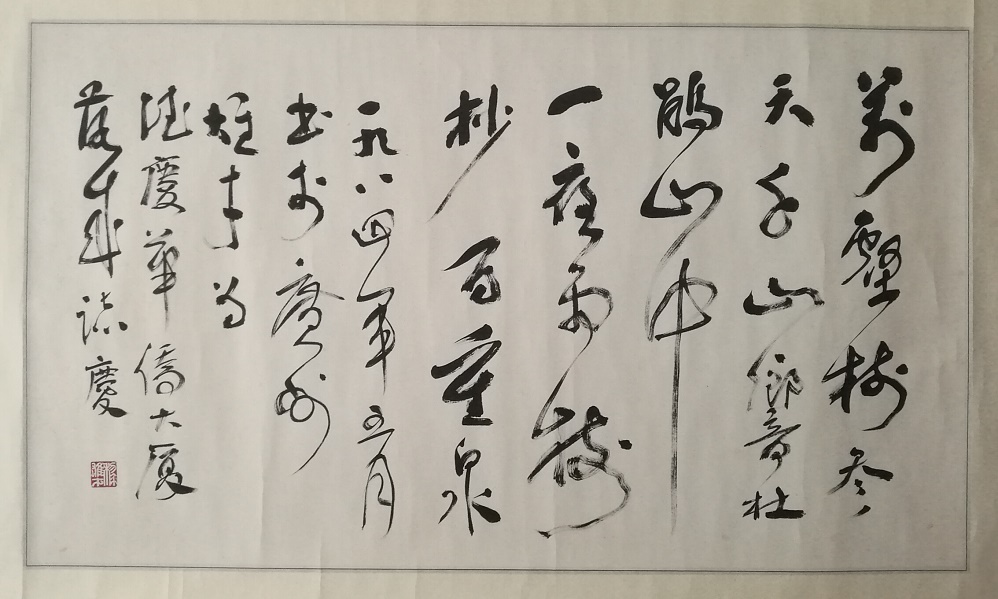 萬壑樹參
天千山響杜
鵑山中
一夜雨樹
杪百重泉
一九八四年五月
書於廣州
雄才为
德慶華僑大厦
落成誌慶